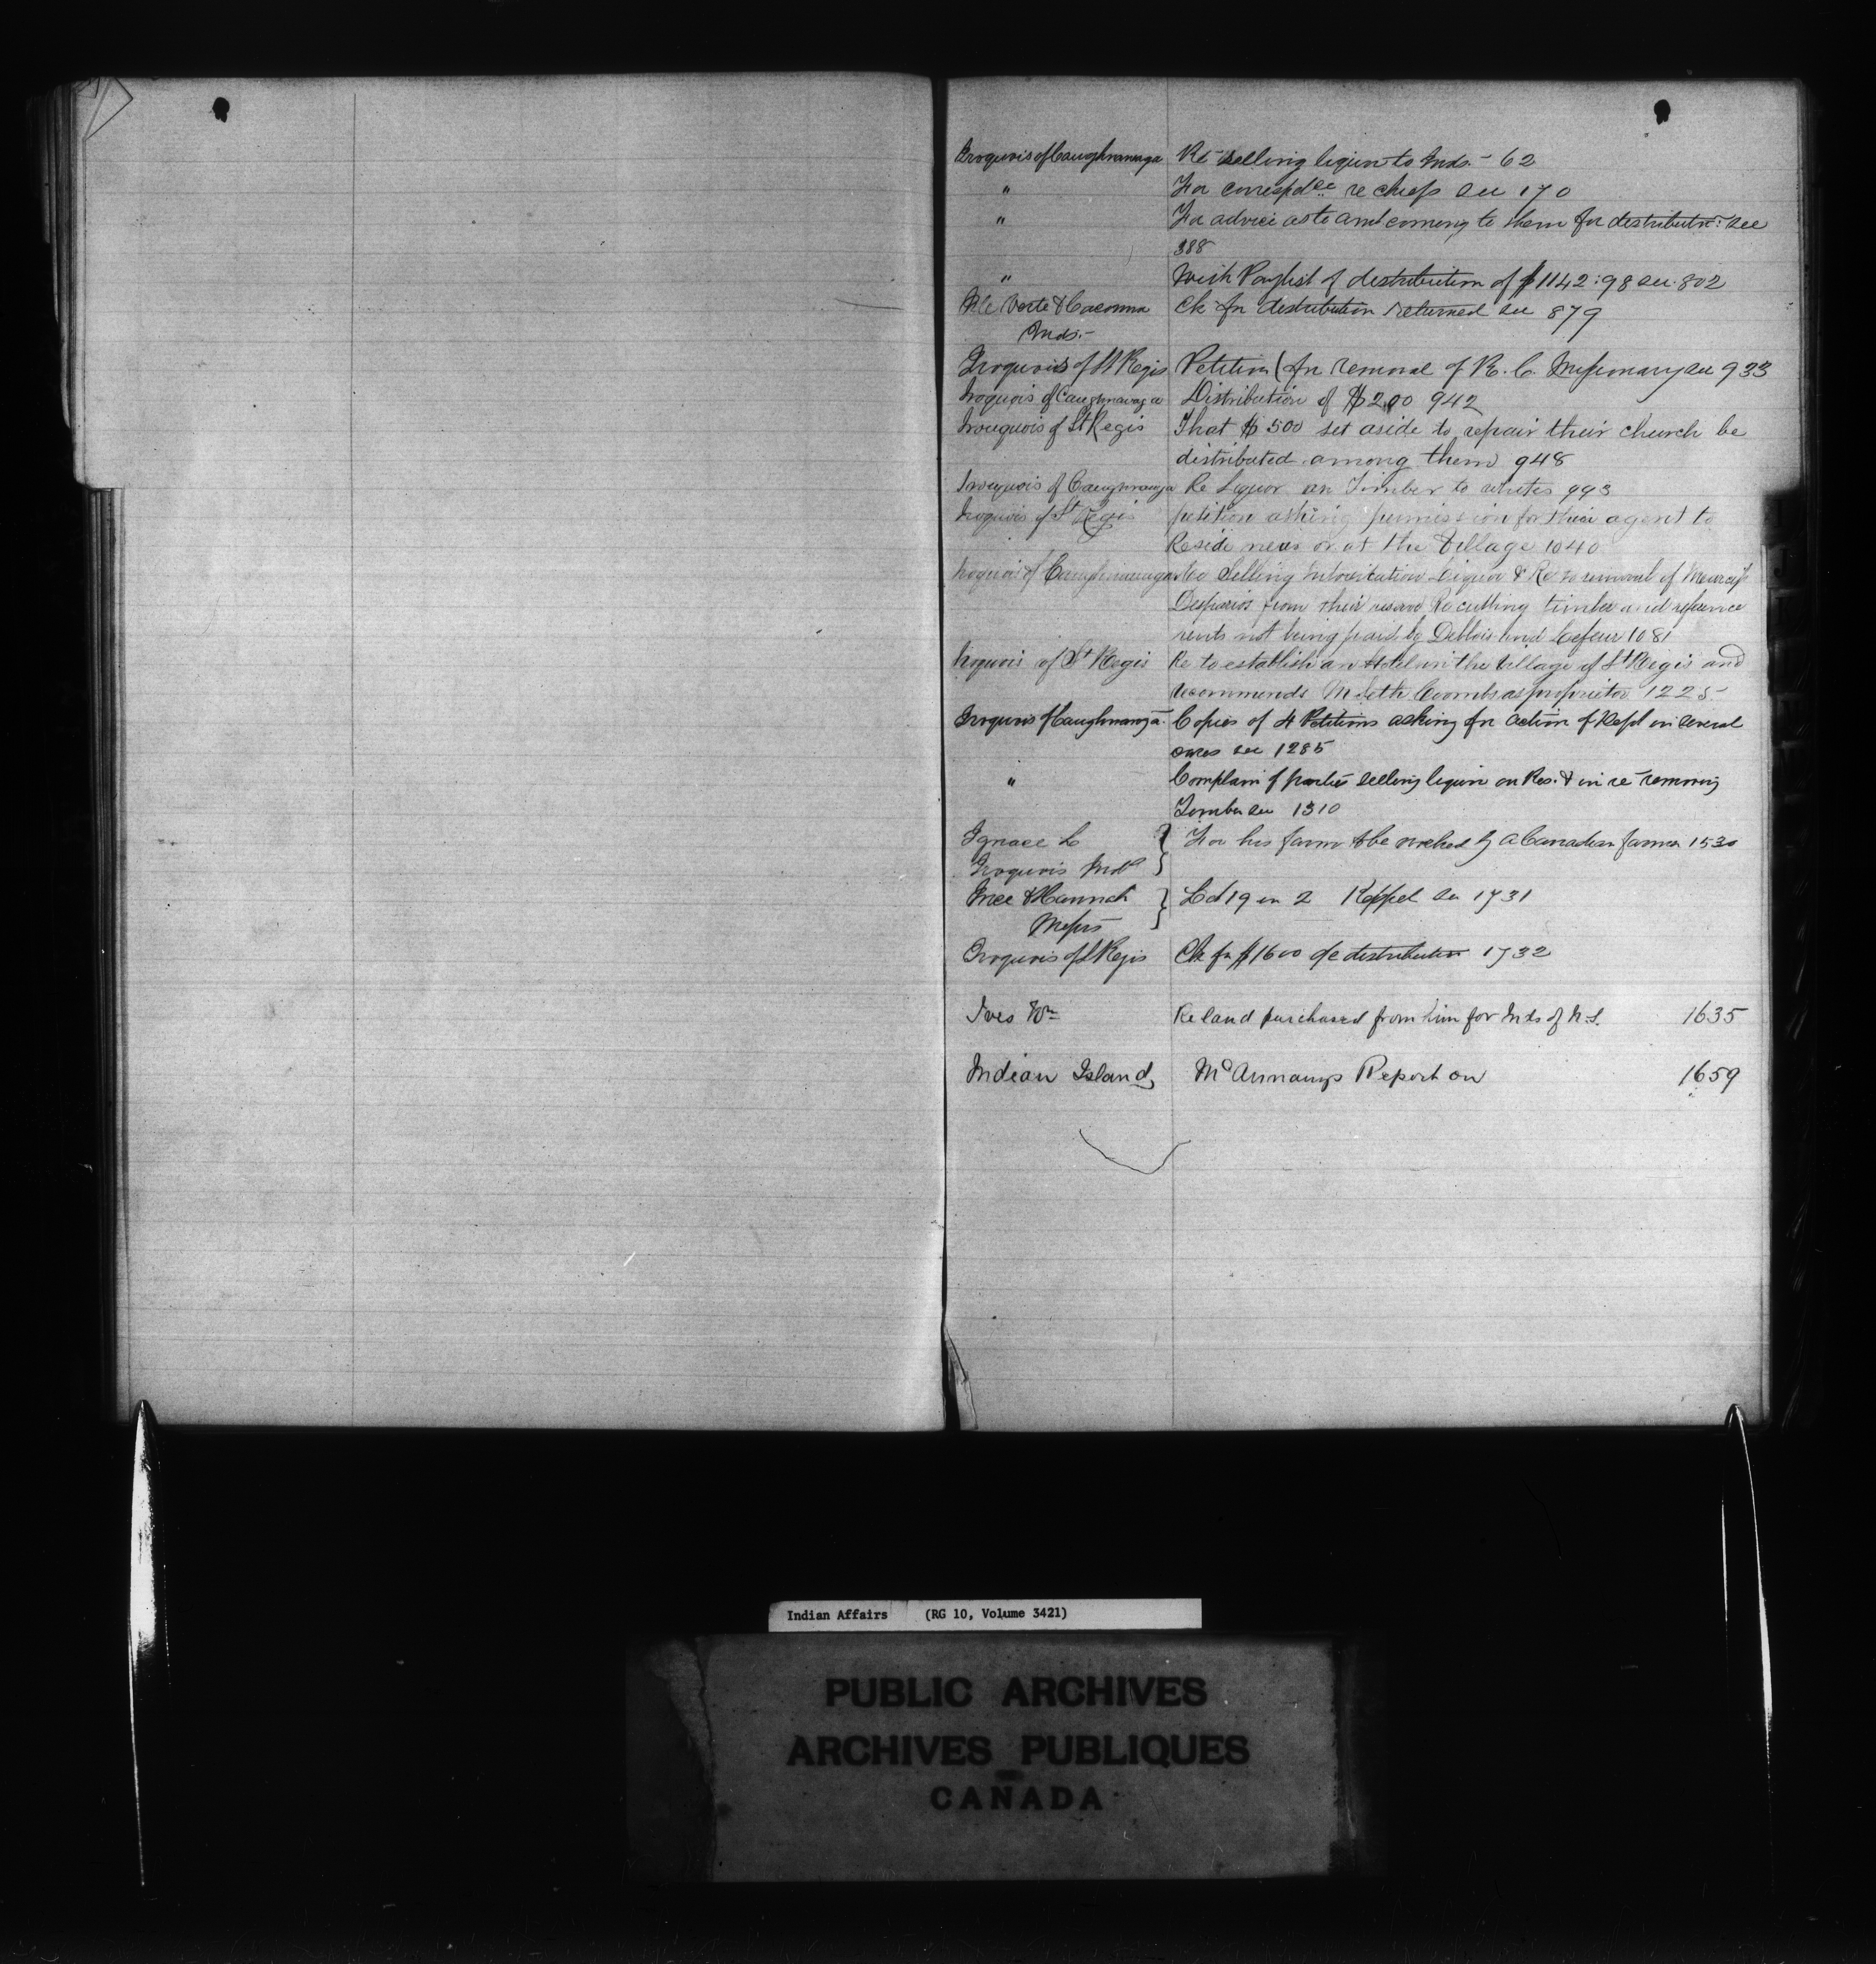 Iroquois of Caughnawaga Re selling liquor to Inds. - 62
" For correspdce re chiefs see 170
" For advice as to amt coming to them for distributn: see
388
" With Paylist of distribution of $1142:98 see 802
Isle Verte & Cacouna Ck for distribution returned see 879
Inds.-
Iroquois of St Regis Petition for removal of R. C. Missionary see 933
Iroquois of Caughnawaga Distribution of $200 942
Irouquois of St Regis That $500 set aside to repair their church be
distributed among them 948
Irouquois of Caughnawaga Re Liquor an Timber to whites 993
Iroquois of St Regis petition asking permission for their agent to
Reside near or at the Village 1040
Iroquois of Caughnawaga Re Selling Intoxitation Liquor & Re to removal of
from their reserve Re cutting timber and refference
rents not being paid by Deblois and 1081
Iroquois of St Regis Re to establish an Hotel in the Village of St Regis and
recommends M Seth Coombs as proprietor 1225
Iroquois of Caughnawaga. Copies of 4 Petitions asking for action of Dept in several
cases see 1285
" Complain of parties selling liquor on Res. & in re removing
Timber see 1310
Ignace L } For his farm to be worked by a Canadian farmer 1530
Iroquois Indn
Ince & Hannah } Lot 19 in 2 Keppel see 1731
Messrs
Iroquois of St Regis Ck for $1600 for distribution 1732
Ives Wm Re land purchased from him for Inds of N.S. 1635
Indian Island, McAnnany's Report on 1659
Indian Affairs (RG 10, Volume 3421)
PUBLIC ARCHIVES
ARCHIVES PUBLIQUES
CANADA